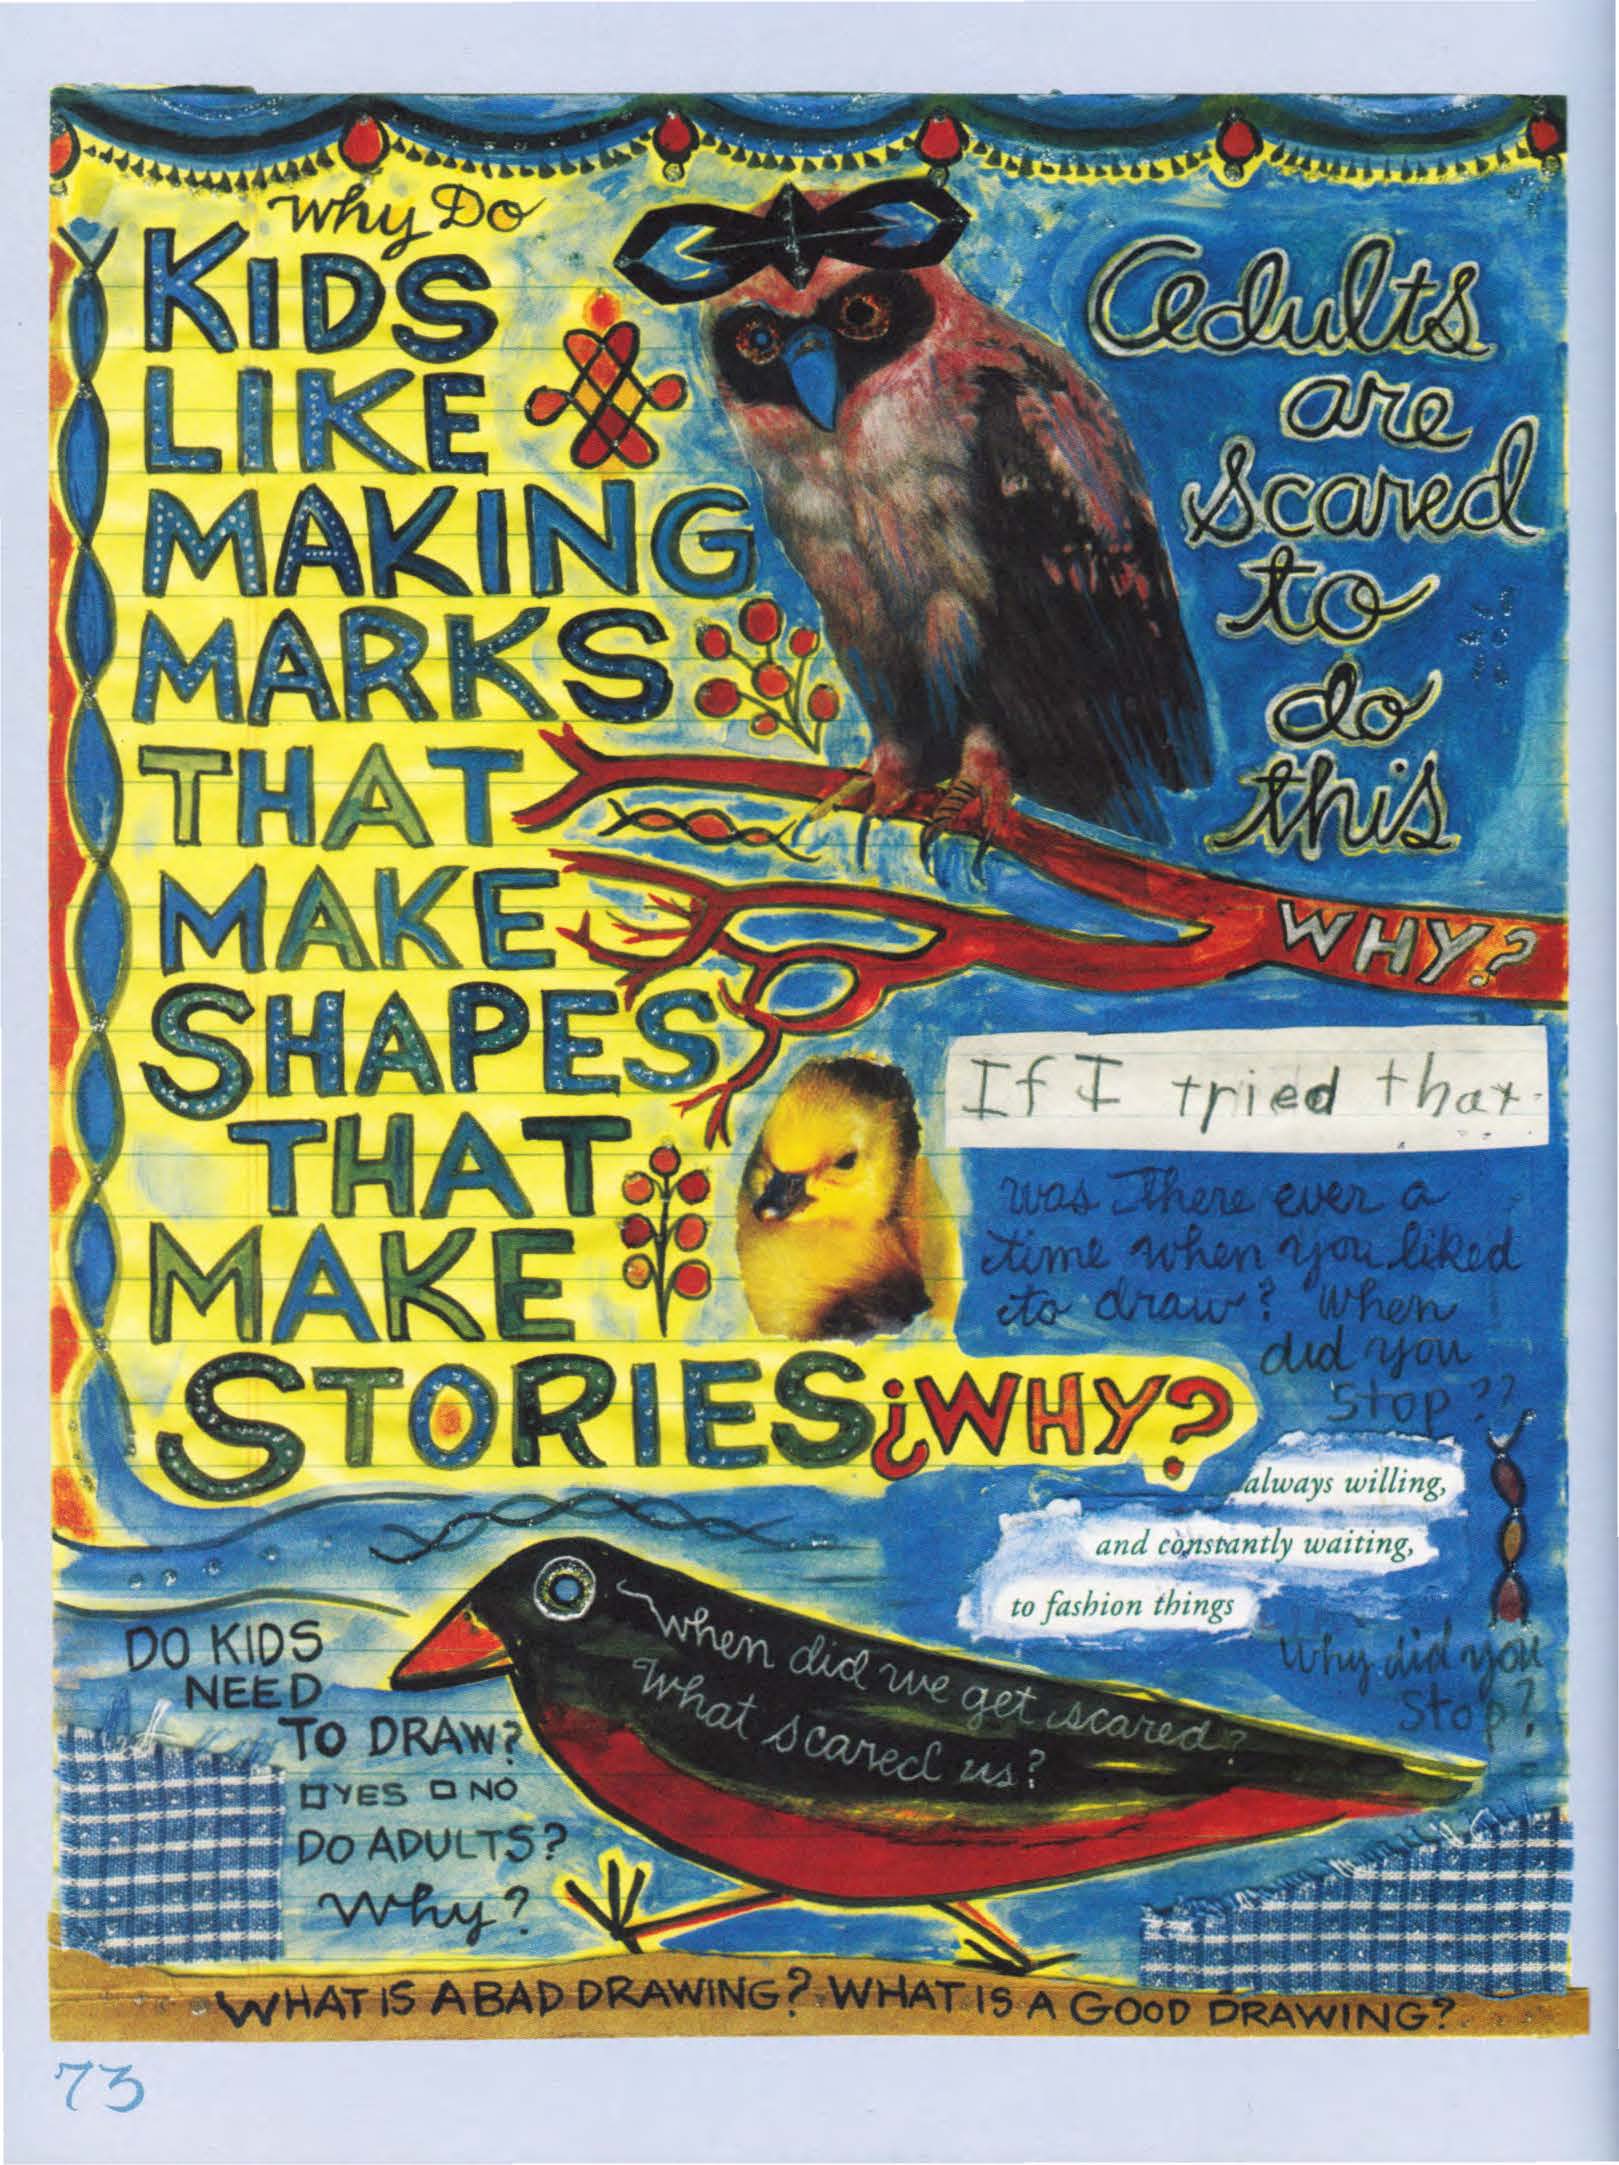 Why Do
KIDS
LIKE
MAKING
MARKS
THAT
MAKE
SHAPES
THAT
MAKE
STORIES ¿WHY?
Adults
are
scared
to
do
this
WHY?
If I tried that.
was there ever a
time when you liked
to draw? When
did you
stop??
always willing,
and constantly waiting,
to fashion things
Why did you
stop?
When did we get scared?
What scared us?
DO KIDS
NEED
TO DRAW?
□YES □NO
DO ADULTS?
Why?
WHAT IS A BAD DRAWING? WHAT IS A GOOD DRAWING?
73